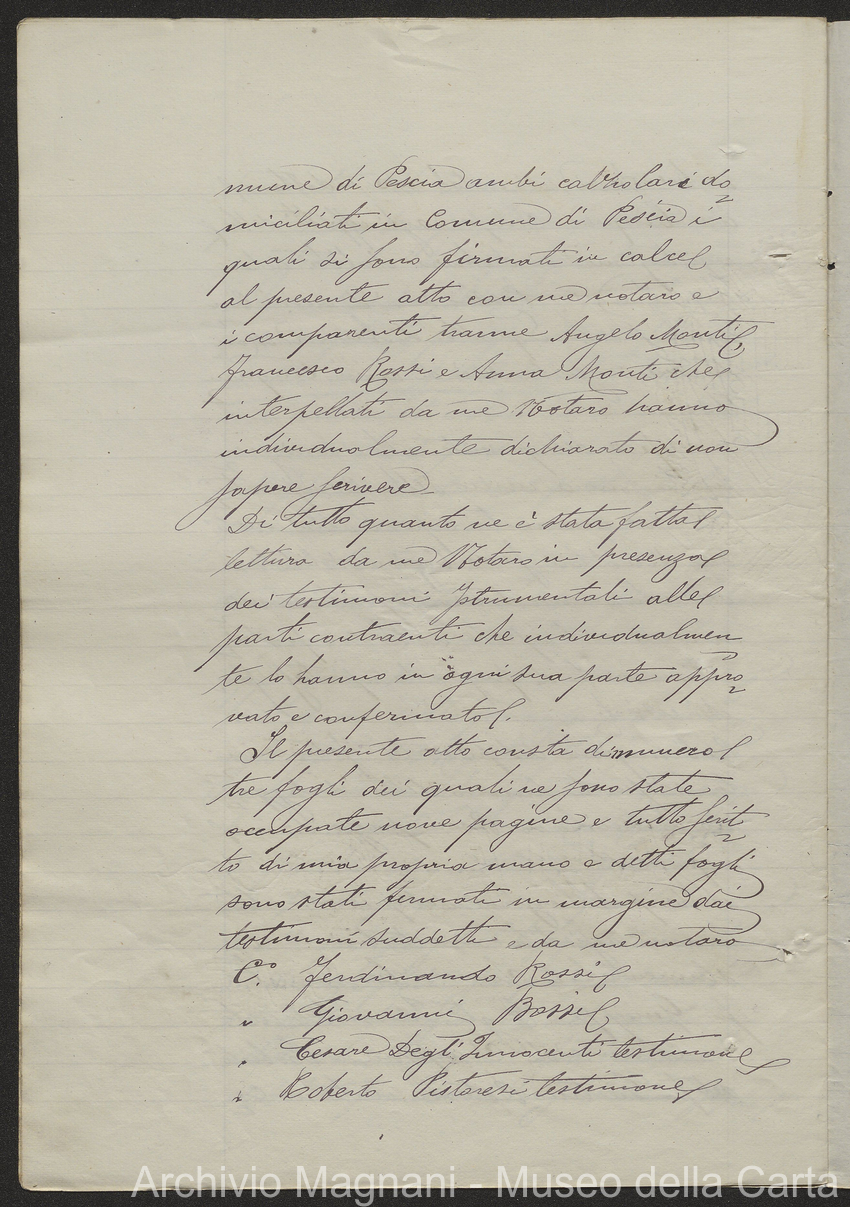 mune di Pescia ambi cartolari do
miciliati in Comune di Pescia i
quali si sono firmati in calce
al presente atto con me notaro e
i comparenti tranne Angelo Monti,
Francesco Rossi e Anna Monti che
interpellati da me Notaro hanno
individualmente dichiarato di non
sapere scrivere
Di tutto quanto ne è stata fatta
lettura da me Notaro in presenza
dei testimoni Istrumentali alle
parti contraenti che individualmen
te lo hanno in ogni sua parte appro
vato e confermato.
Il presente atto consta di numero
tre fogli dei quali ne sono state
occupate nove pagine e tutto scrit
to di mia propria mano e detti fogli
sono stati firmati in margine dai
testimoni suddetti e da me notaro
C.° Ferdinando Rossi
" Giovanni Rossi
" Cesare Degl'Innocenti testimone
" Roberto Pistoresi testimone
Archivio Magnani - Museo della Carta